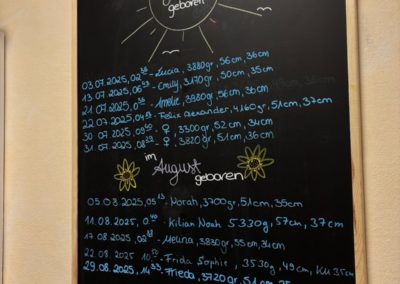 geboren
03.07.2025, 02⁵⁸ - Lucia, 3880gr, 56cm, 36cm
13.07.2025, 06⁵³ - Emily, 3170gr, 50cm, 35cm
21.07.2025, - Amelie, 3980gr, 56cm, 36cm
22.07.2025, 04 - Felix Alexander, 4160gr, 51cm, 37cm
30.07.2025, - ♀, 3300gr, 52cm, 34cm
31.07.2025, - ♀, 3820gr, 51cm, 36cm
im
August
geboren
05.08.2025, 05¹³ - Norah, 3700gr, 51cm, 35cm
11.08.2025, - Kilian Noah 5330g, 57cm, 37cm
17.08.2025, 02 - Melina, 3830gr, 55cm, 34cm
22.08.2025 - Frida Sophie, 3530g, 49cm, KU 35cm
29.08.2025, 14³⁵ - Frieda, 3720gr, 51cm